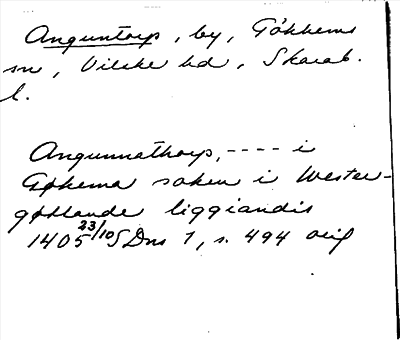 Anguntorp, by, Gökhems
sn, Vilske hd, Skarab.
l.
Angunnathorp, ---- i
Gøkema soken i Wester-
gøtlande liggiandis
1405 23/10 SDns 1, s. 494 orig